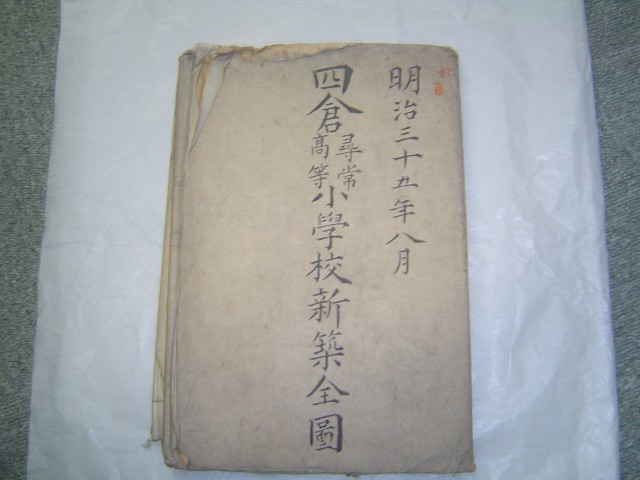 明治三十五年八月
四倉尋常高等小學校新築全圖